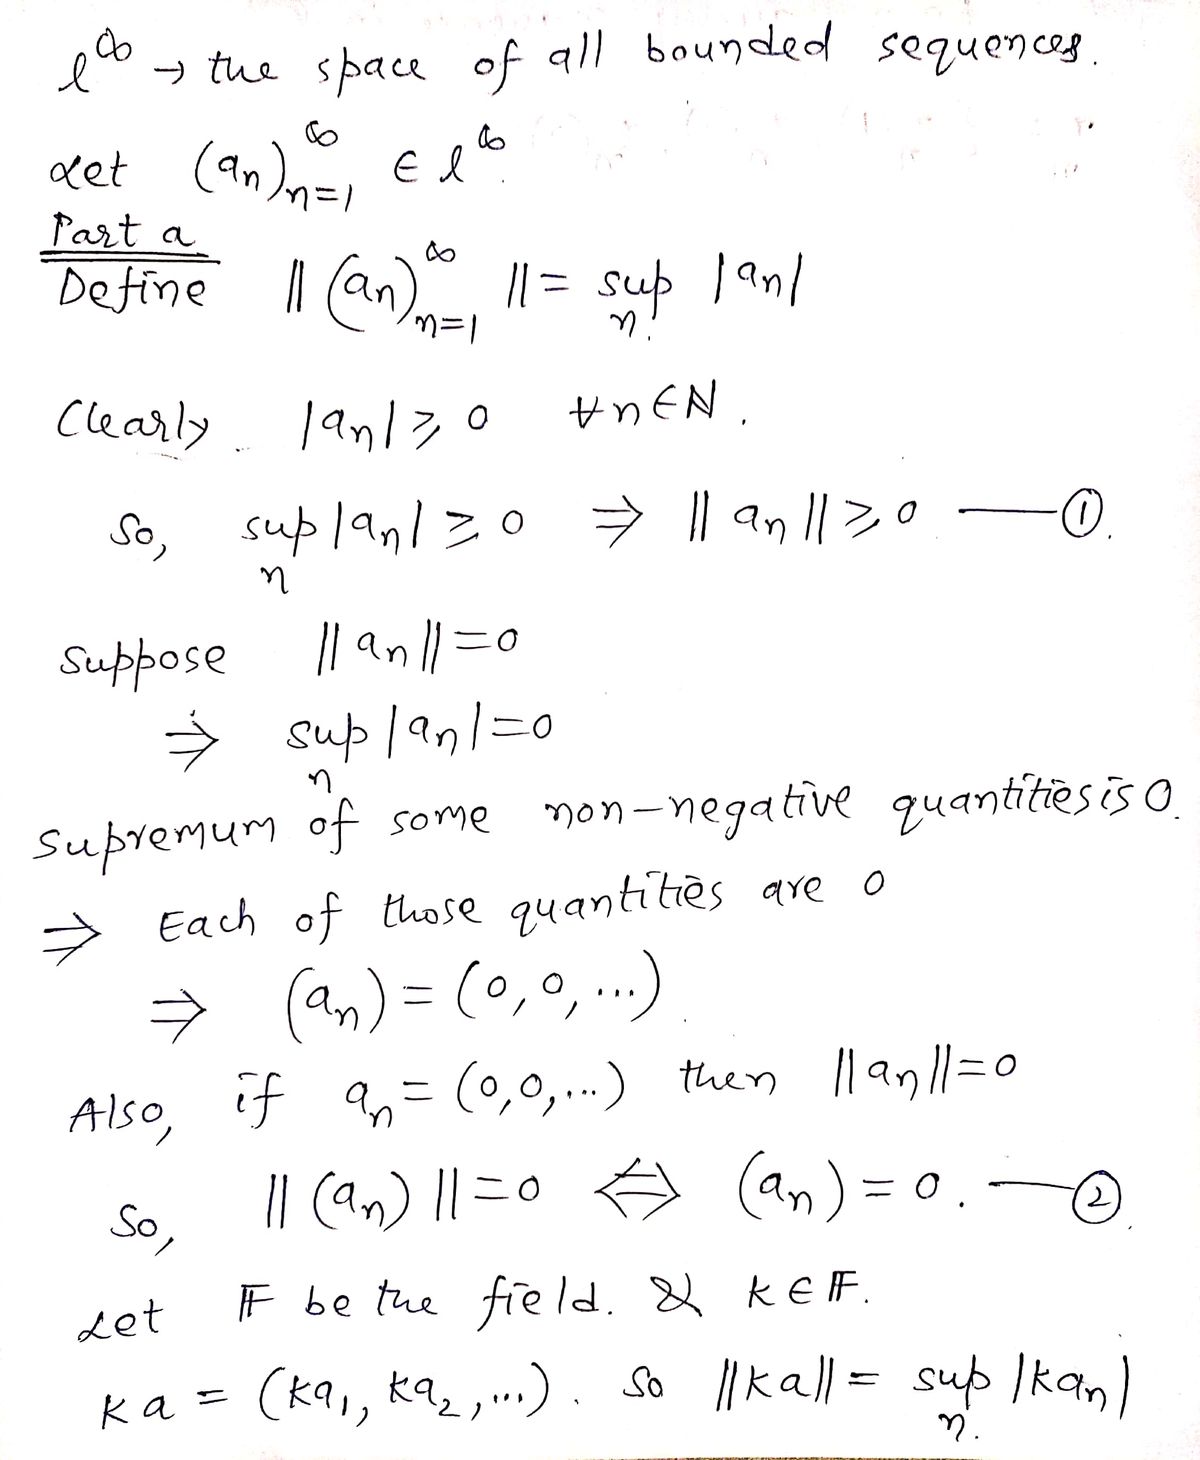 l^∞ → the space of all bounded sequences.
Let (a_n)_{n=1}^∞ ∈ l^∞.
Part a
Define ‖(a_n)_{n=1}^∞‖ = sup_n |a_n|
Clearly |a_n| ≥ 0 ∀n∈ℕ.
So, sup_n |a_n| ≥ 0 ⇒ ‖a_n‖ ≥ 0 —①.
Suppose ‖a_n‖=0
⇒ sup_n |a_n|=0
Supremum of some non-negative quantities is 0.
⇒ Each of those quantities are 0
⇒ (a_n) = (0,0,...)
Also, if a_n = (0,0,...) then ‖a_n‖=0
So, ‖(a_n)‖=0 ⇔ (a_n) = 0. —②.
Let 𝔽 be the field. & k ∈ 𝔽.
ka = (ka_1, ka_2,...). So ‖ka‖ = sup_n. |ka_n|